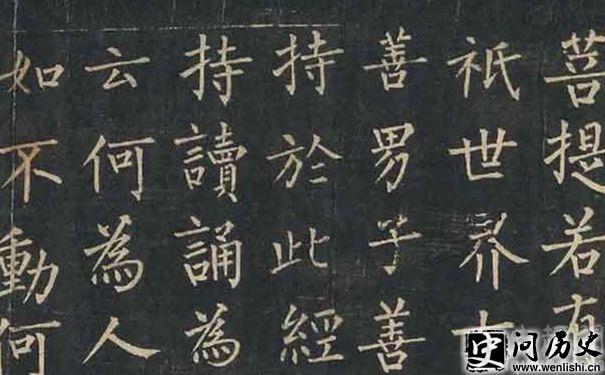 菩提若有
祇世界七
善男子善
持於此經
持讀誦為
云何為人
如不動何
史 问历史
www.wenlishi.cn